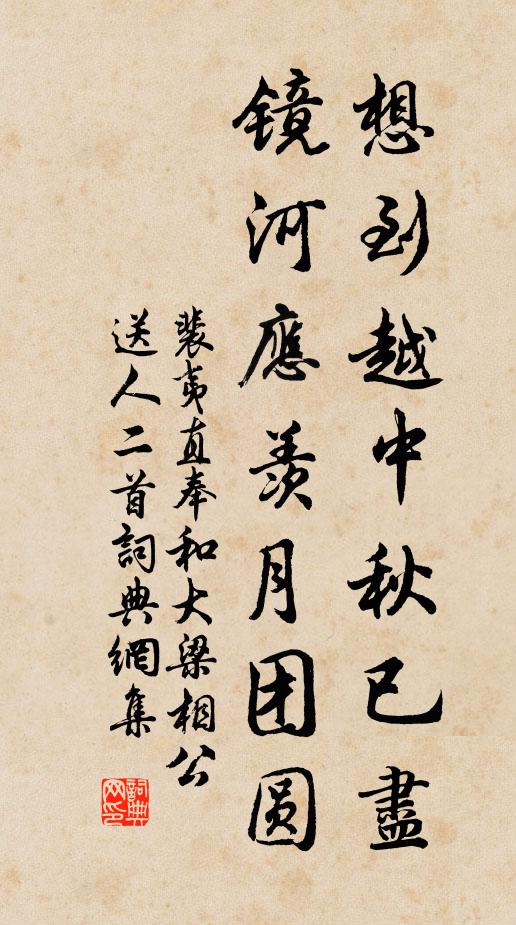 想到越中秋已盡
镜河應羨月团圆
裴夷直奉和大梁相公
送人二首詞典網集
詞典网印